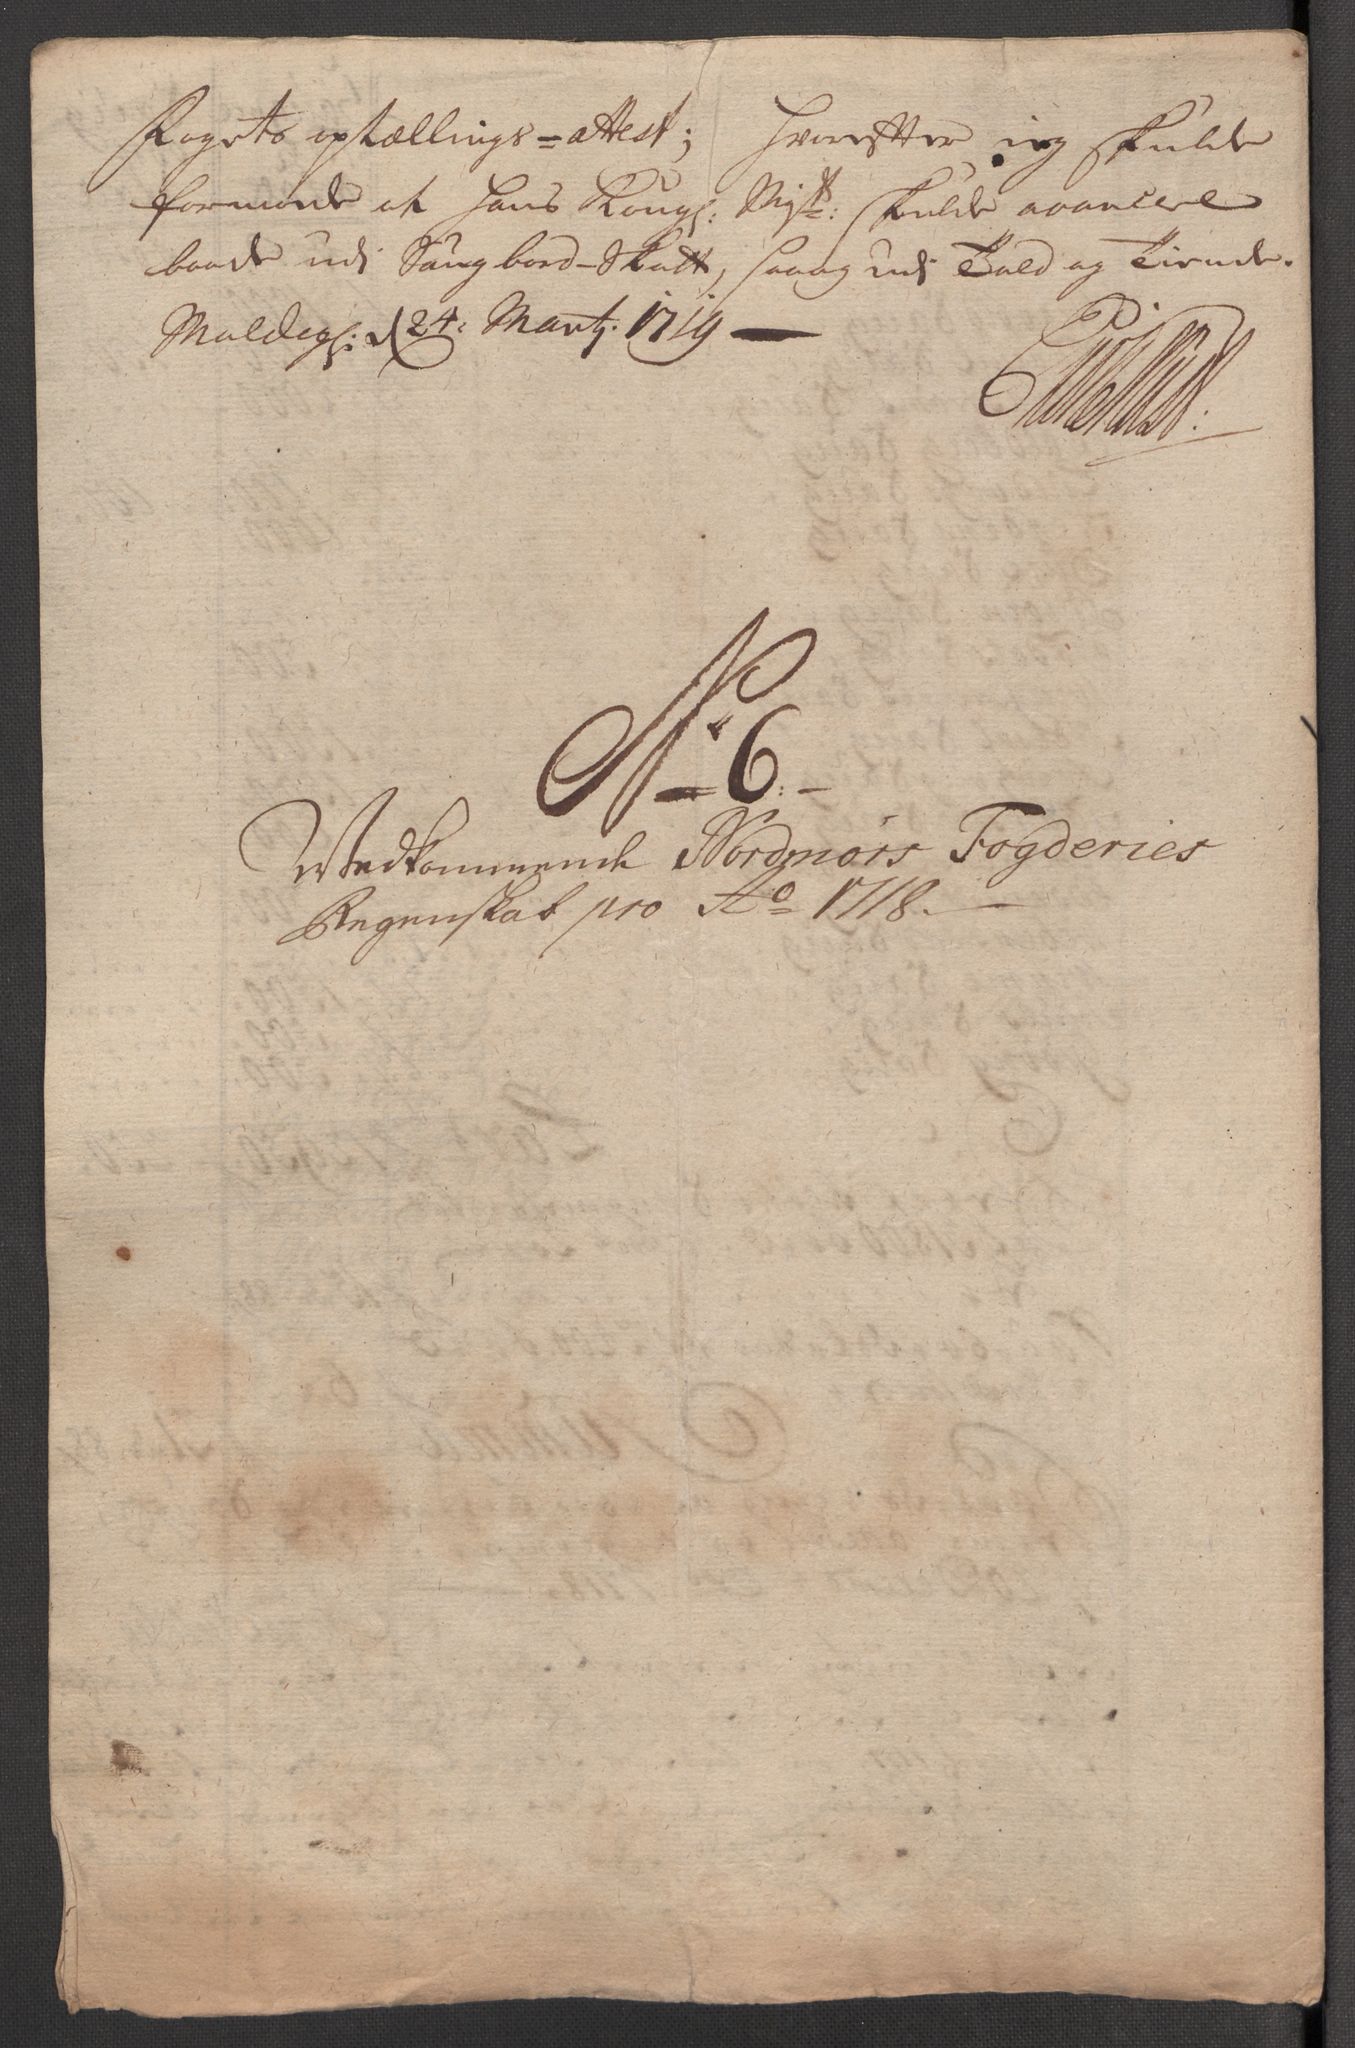 Fogets optællings=attest; hvoreffter ieg skulde
formode at hans Kongl: Mayst: skulde avancere
baade udi Saugbord-Skatt, saa og udi Told og Tiende.
Moldegl: d 24: Martj. 1719
No 6.
Vedkommende Nordmørs Fogderies
Regenskab pro Ao 1718.